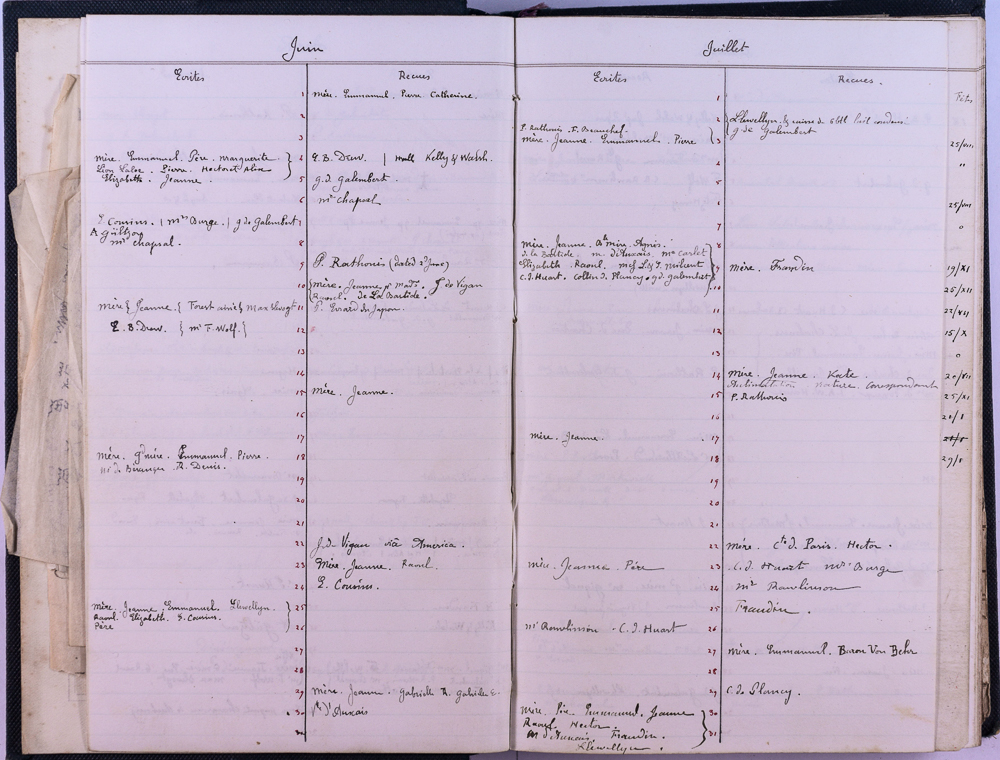 Juin
Ecrites
Recues
1 Mère. Emmanuel. Pierre Catherine.
2
3
Mère. Emmanuel. Père. Marguerite
4 E.B. Drew. | Kelly & Walsh.
Pierre. Hector et Aline
Elizabeth. Jeanne.
5 g. d. Galembert.
6 Mr Chapsal
7
S. Cousins. | Mrs Burge. | g de Galembert
A
Mr Chapsal.
8
9 P. Rathouis (dated 3 June)
10 Mère. Jeanne. J de Vigan
Raoul. de La Bastide.
Mère { Jeanne. {
11 P. Evrard du Japon.
E. B. Drew. { Mr F. Wolf. }
12
13
14
15 Mère. Jeanne.
16
17
Mère. Emmanuel. Pierre.
18
de Béranger. R. Denis.
19
20
21
22 J. de Vigan via America.
23 Mère. Jeanne. Raoul.
24 S. Cousins.
Mère. Jeanne. Emmanuel. Llewellyn.
25
Raoul. Elizabeth. S. Cousins.
Père
26
27
28
29 Mère. Jeanne. Gabrielle R.
30 d'Auxais
Juillet
Ecrites
Recues.
Fêtes
1
2 Llewellyn.
g de Galembert
P. Rathouis. F.
Mère. Jeanne. Emmanuel. Pierre
3
25/VII
4
"
5
6
25/VII
7
0
Mère. Jeanne. Agnès.
8
d. la Bastide. M. d'Auxais.
Elizabeth. Raoul.
9 Mère. Frandin
19/XI
C. d. Huart. Collin d. Plancy. g d. Galembert
10
25/XII
11
22/XI
12
15/X
13
0
14 Mère. Jeanne. Kate.
20/VII
15 P. Rathouis
25/XI
16
Mère. Jeanne.
17
18
29/1
19
20
21
22 Mère. Cte d. Paris. Hector.
Mère. Jeanne. Père
23 C. d. Huart Mrs Burge
24 Mr Rawlinson
25 Frandin.
Mr Rawlinson. C. d. Huart
26
27 Mère. Emmanuel. Baron Von Behr
28
29 C. de Plancy.
Mère. Père. Emmanuel. Jeanne
30
Raoul. Hector.
M d'Auxais. Frandin.
31
Llewellyn.